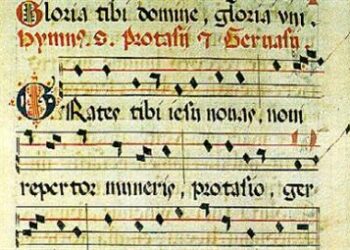 Gloria tibi domine, gloria uni.
Hymnus. S. Protasii ⁊ Geruasii.
Grates tibi iesu nouas, noui
repertor muneris, protasio, ger